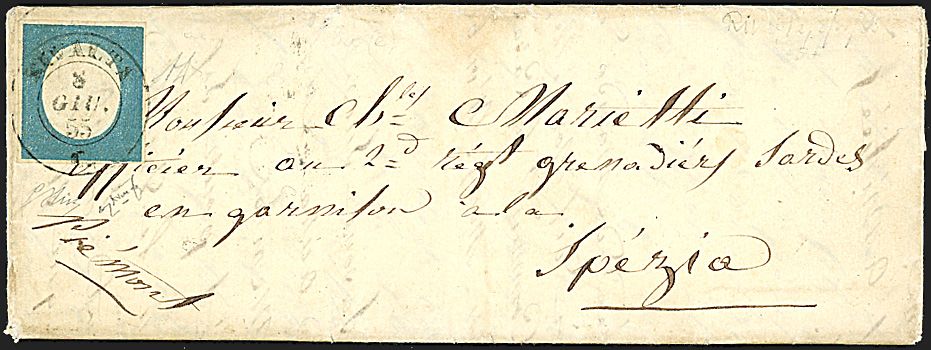 8
GIU.
55
Monsieur Ch.les Marietti
officier au 2.d régt grenadiérs Sardes
en garnison a la
Spézia
Piémont